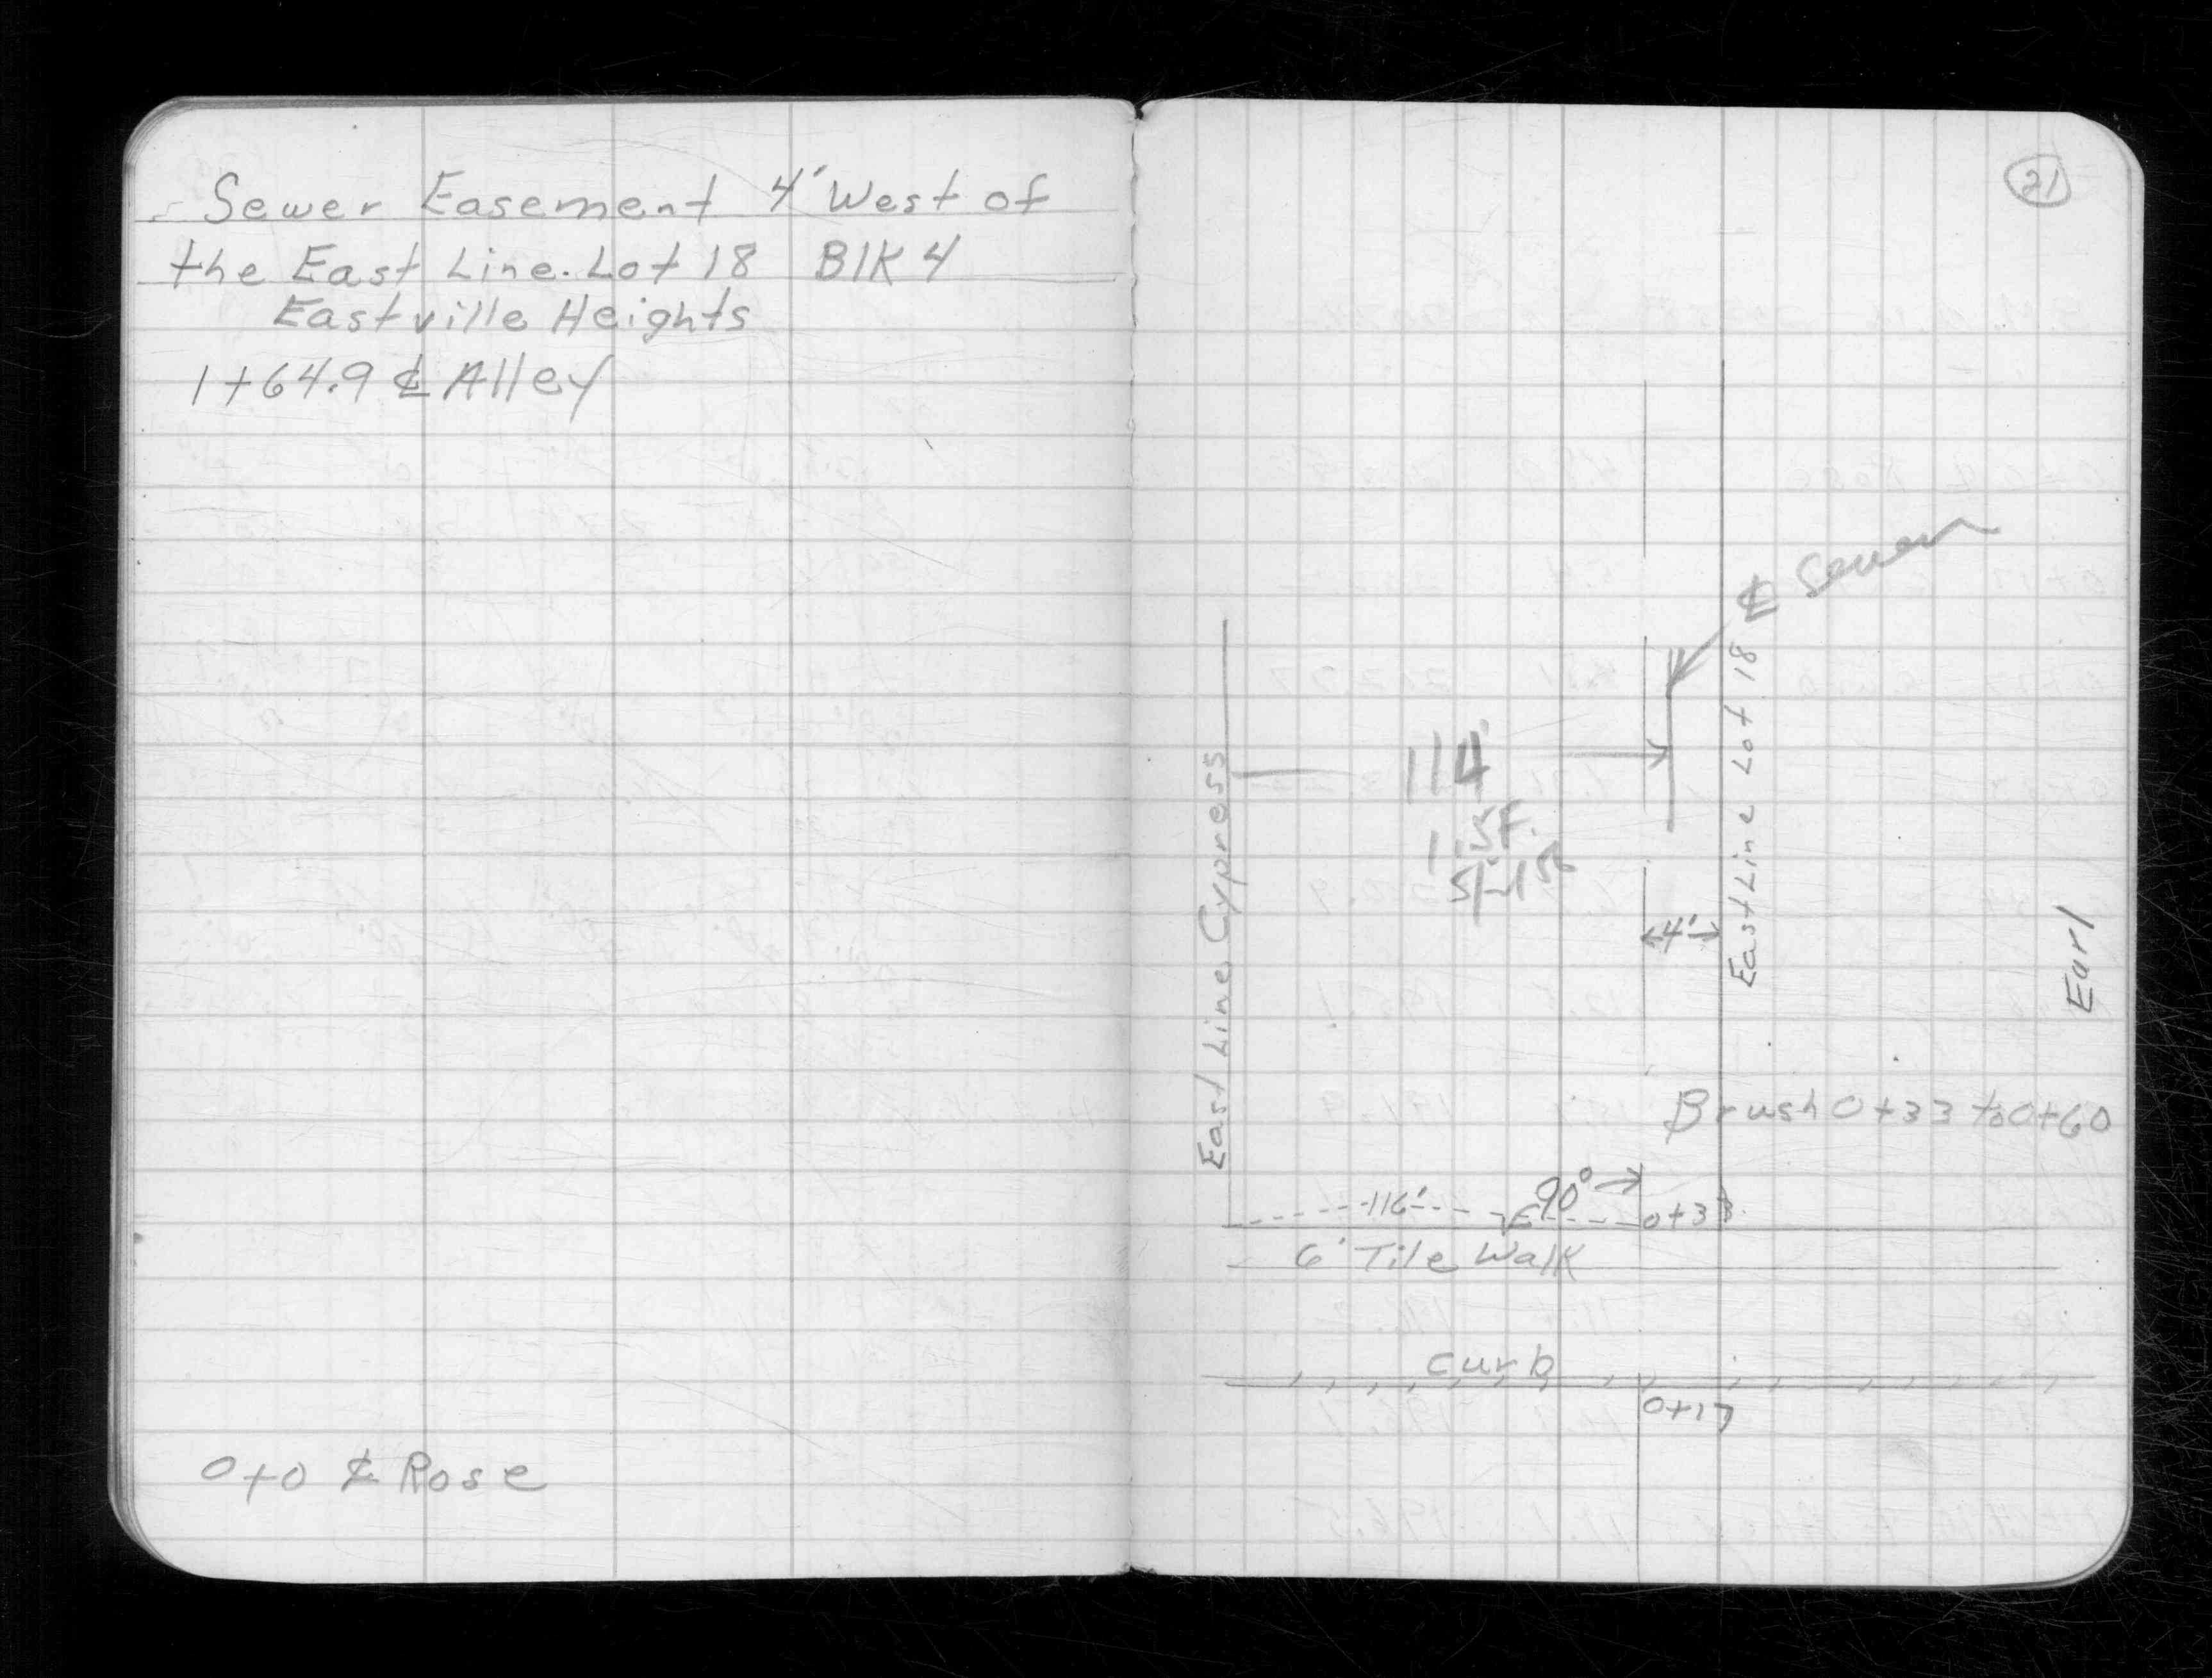 Sewer Easement 4' West of
the East Line. Lot 18 Blk 4
Eastville Heights
1+64.9 ℄ Alley
0+0 ℄ Rose
21
℄ Sewer
East Line Lot 18
East Line Cypress
114'
4'
Earl
Brush 0+33 to 0+60
90°
116'
0+33
6' Tile Walk
curb
0+17